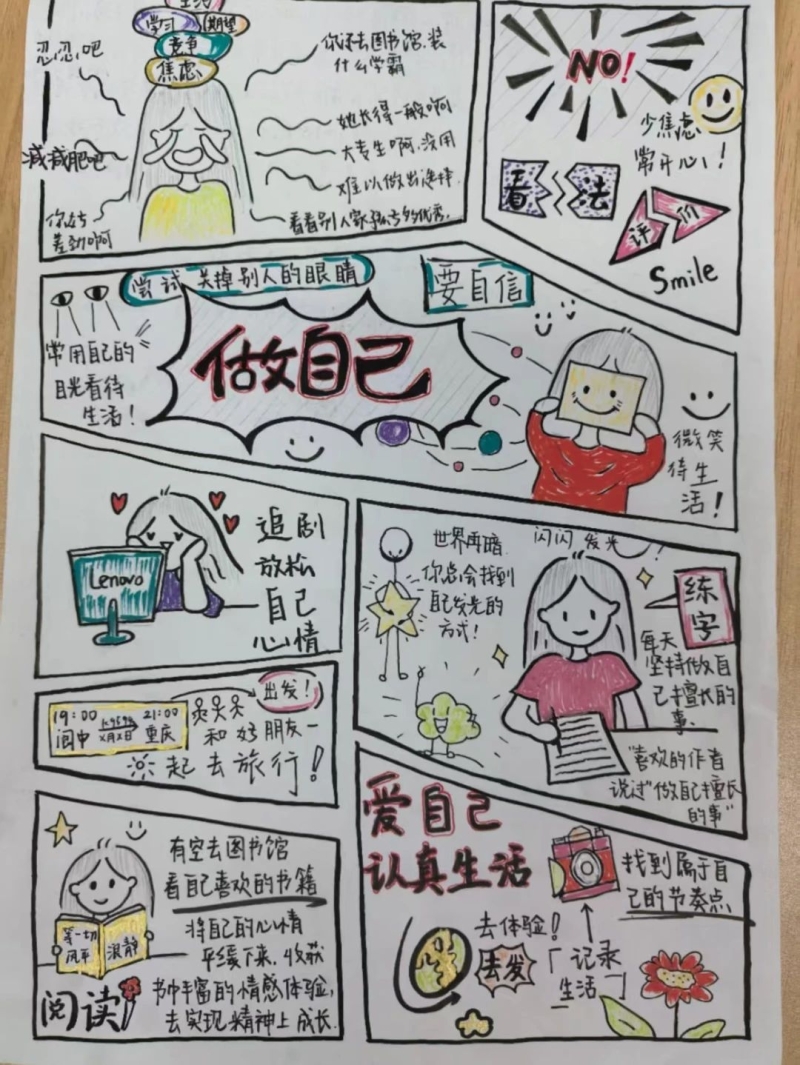 生活
学习
期望
竞争
焦虑
忍忍吧
减减肥吧
你好
差劲啊
你还去图书馆,装
什么学霸
她长得一般啊
大专生啊,没用
难以做出选择
看看别人家孩子多优秀.
NO!
少焦虑
常开心!
看法
评价
Smile
尝试关掉别人的眼睛
要自信
常用自己的
目光看待
生活!
做自己
微笑
待生
活!
追剧
放松
自己
心情
Lenovo
世界再暗.
你总会找到
自己发光的
方式!
闪闪发光
练字
每天
坚持做自
己擅长的
事.
"喜欢的作者
说过"做自己擅长
的事"
19:00
21:00
阆中
重庆
出发!
和好朋友一
起去旅行!
有空去图书馆
看自己喜欢的书籍
将自己的心情
平缓下来.收获
书中丰富的情感体验,
去实现精神上成长.
等一切
风平
浪静
阅读
爱自己
认真生活
去体验!
去发
「记录
生活」
找到属于自
己的节奏点